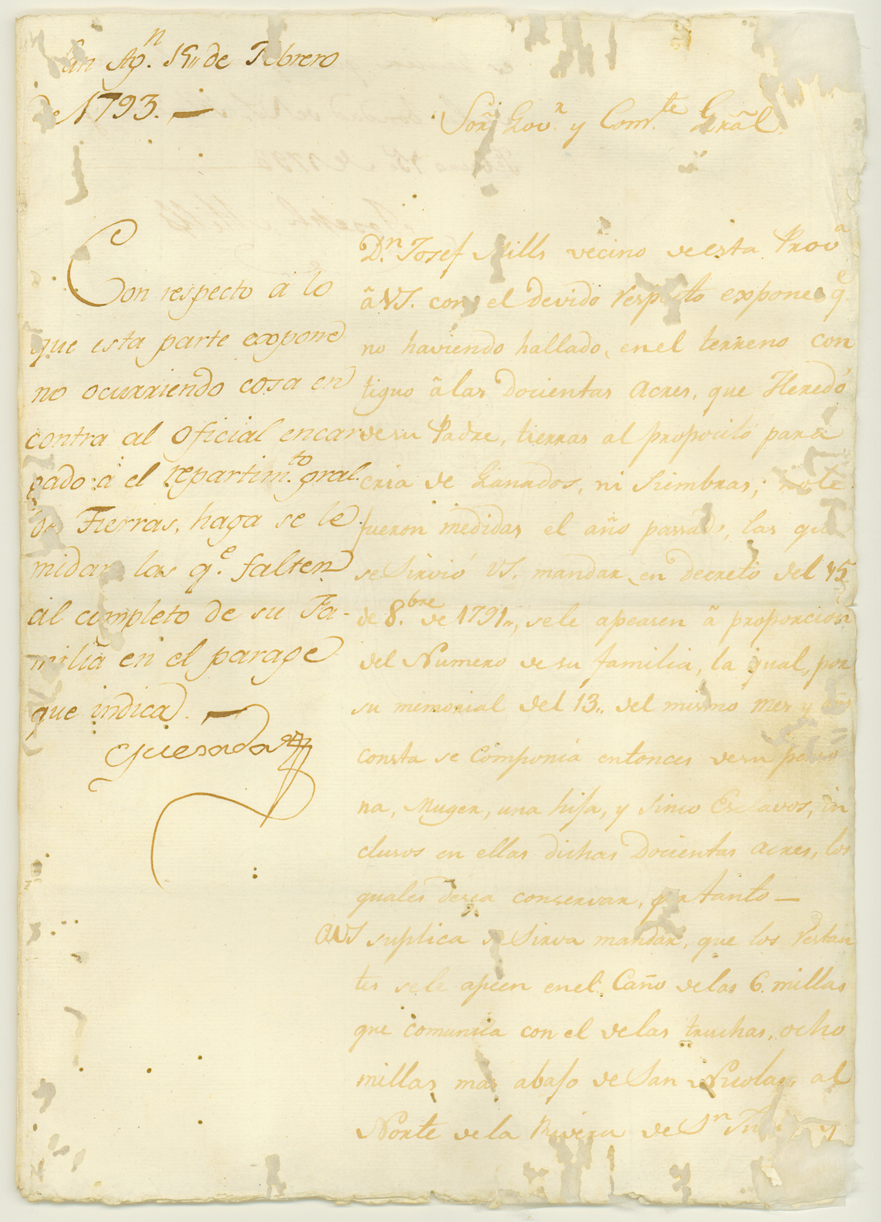 San Ag.n 19,, de Febrero
de 1793. —
Con respecto á lo
que esta parte expone
no ocurriendo cosa en
contra al oficial encar
gado á el repartim.to gral.
de Tierras, haga se le
midan las q.e falten
al completo de su Fa-
milia en el parage
que indica. —
Quesada
Señ.r Gov.r y Com.te Grãl
D.n Josef Mills vecino de esta Prov.a
â VS. con el devido respeto expone q.e
no haviendo hallado, en el terreno con
tiguo â las docientas Acres, que Heredó
de su Padre, tierras al proposito para
cria de Ganados, ni Siembras; no le
fueron medidas el año passado, las que
se Sirvió VS. mandar, en decreto del 15
de 8.bre de 1791,, se le apeasen â proporcion
del Numero de su familia, la qual, por
su memorial del 13,, del mismo mes y año
consta se Componia entonces de su perso
na, Muger, una hija, y Sinco Esclavos, in
clusos en ellas dichas Docientas Acres, los
quales desea conservar, por tanto —
A VS suplica se Sirva mandar, que los restan
tes se le apeen en el Caño de las 6. millas
que comunica con el de las truchas, ocho
millas mas abajo de San Nicolas, al
Norte de la Rivera de S.n Juan y